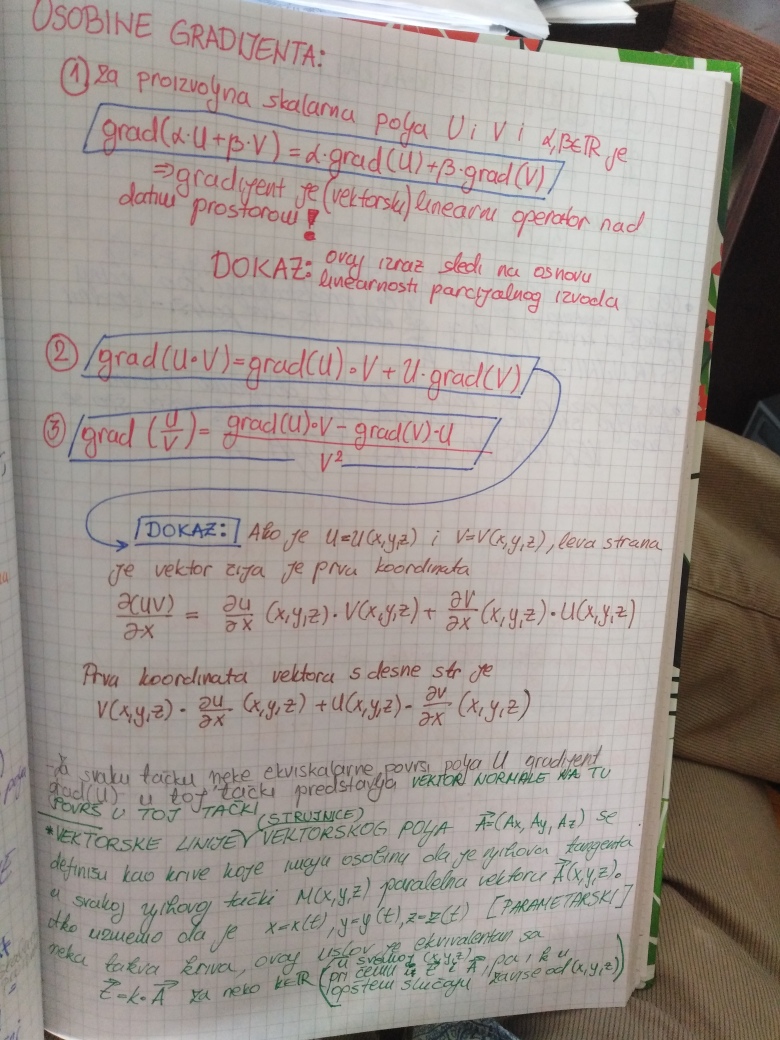 OSOBINE GRADIJENTA:
① za proizvoljna skalarna polja U i V i α,β∈R je
grad(α·U+β·V)=α·grad(U)+β·grad(V)
⇒gradijent je (vektorski) linearni operator nad
datim prostorom!
DOKAZ: ovaj izraz sledi na osnovu
linearnosti parcijalnog izvoda
② grad(U·V)=grad(U)·V+U·grad(V)
③ grad(U/V)= (grad(U)·V-grad(V)·U)/V²
DOKAZ: Ako je U=U(x,y,z) i V=V(x,y,z), leva strana
je vektor čija je prva koordinata
∂(UV)/∂x = ∂U/∂x (x,y,z)·V(x,y,z)+ ∂V/∂x (x,y,z)·U(x,y,z)
Prva koordinata vektora s desne str je
V(x,y,z)· ∂U/∂x (x,y,z)+U(x,y,z)· ∂V/∂x (x,y,z)
svaku tačku neke ekviskalarne površi polja U gradijent
grad(U) u toj tački predstavlja VEKTOR NORMALE NA TU
POVRŠ U TOJ TAČKI
(STRUJNICE)
*VEKTORSKE LINIJE VEKTORSKOG POLJA A⃗=(Ax, Ay, Az) se
definišu kao krive koje imaju osobinu da je njihova tangenta
u svakoj njihovoj tački M(x,y,z) paralelna vektoru A⃗(x,y,z).
Ako uzmemo da je x=x(t), y=y(t), z=z(t) [PARAMETARSKI]
neka takva kriva, ovaj uslov je ekvivalentan sa
t⃗=k·A⃗ za neko k∈R (u svakoj (x,y,z)
pri čemu A⃗, pa i k u
opštem slučaju zavise od (x,y,z))